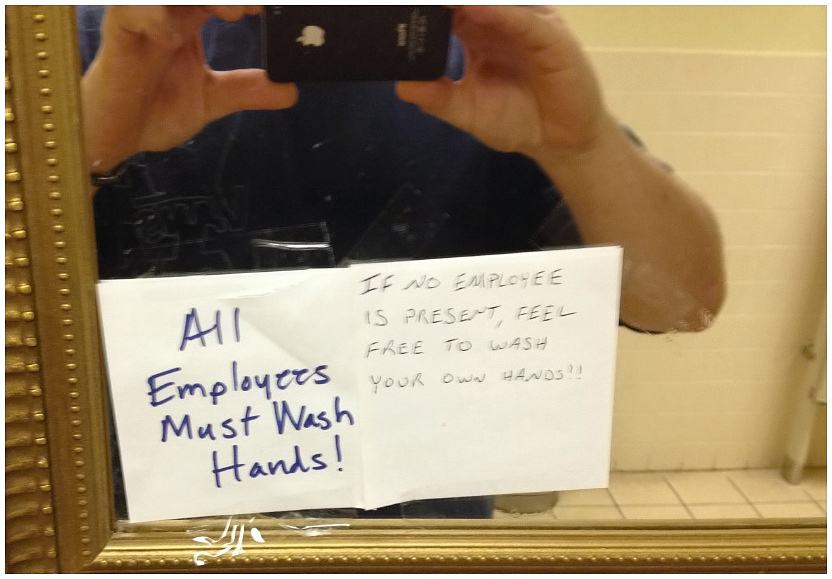 All
Employees
Must Wash
Hands!
IF NO EMPLOYEE
IS PRESENT, FEEL
FREE TO WASH
YOUR OWN HANDS!!